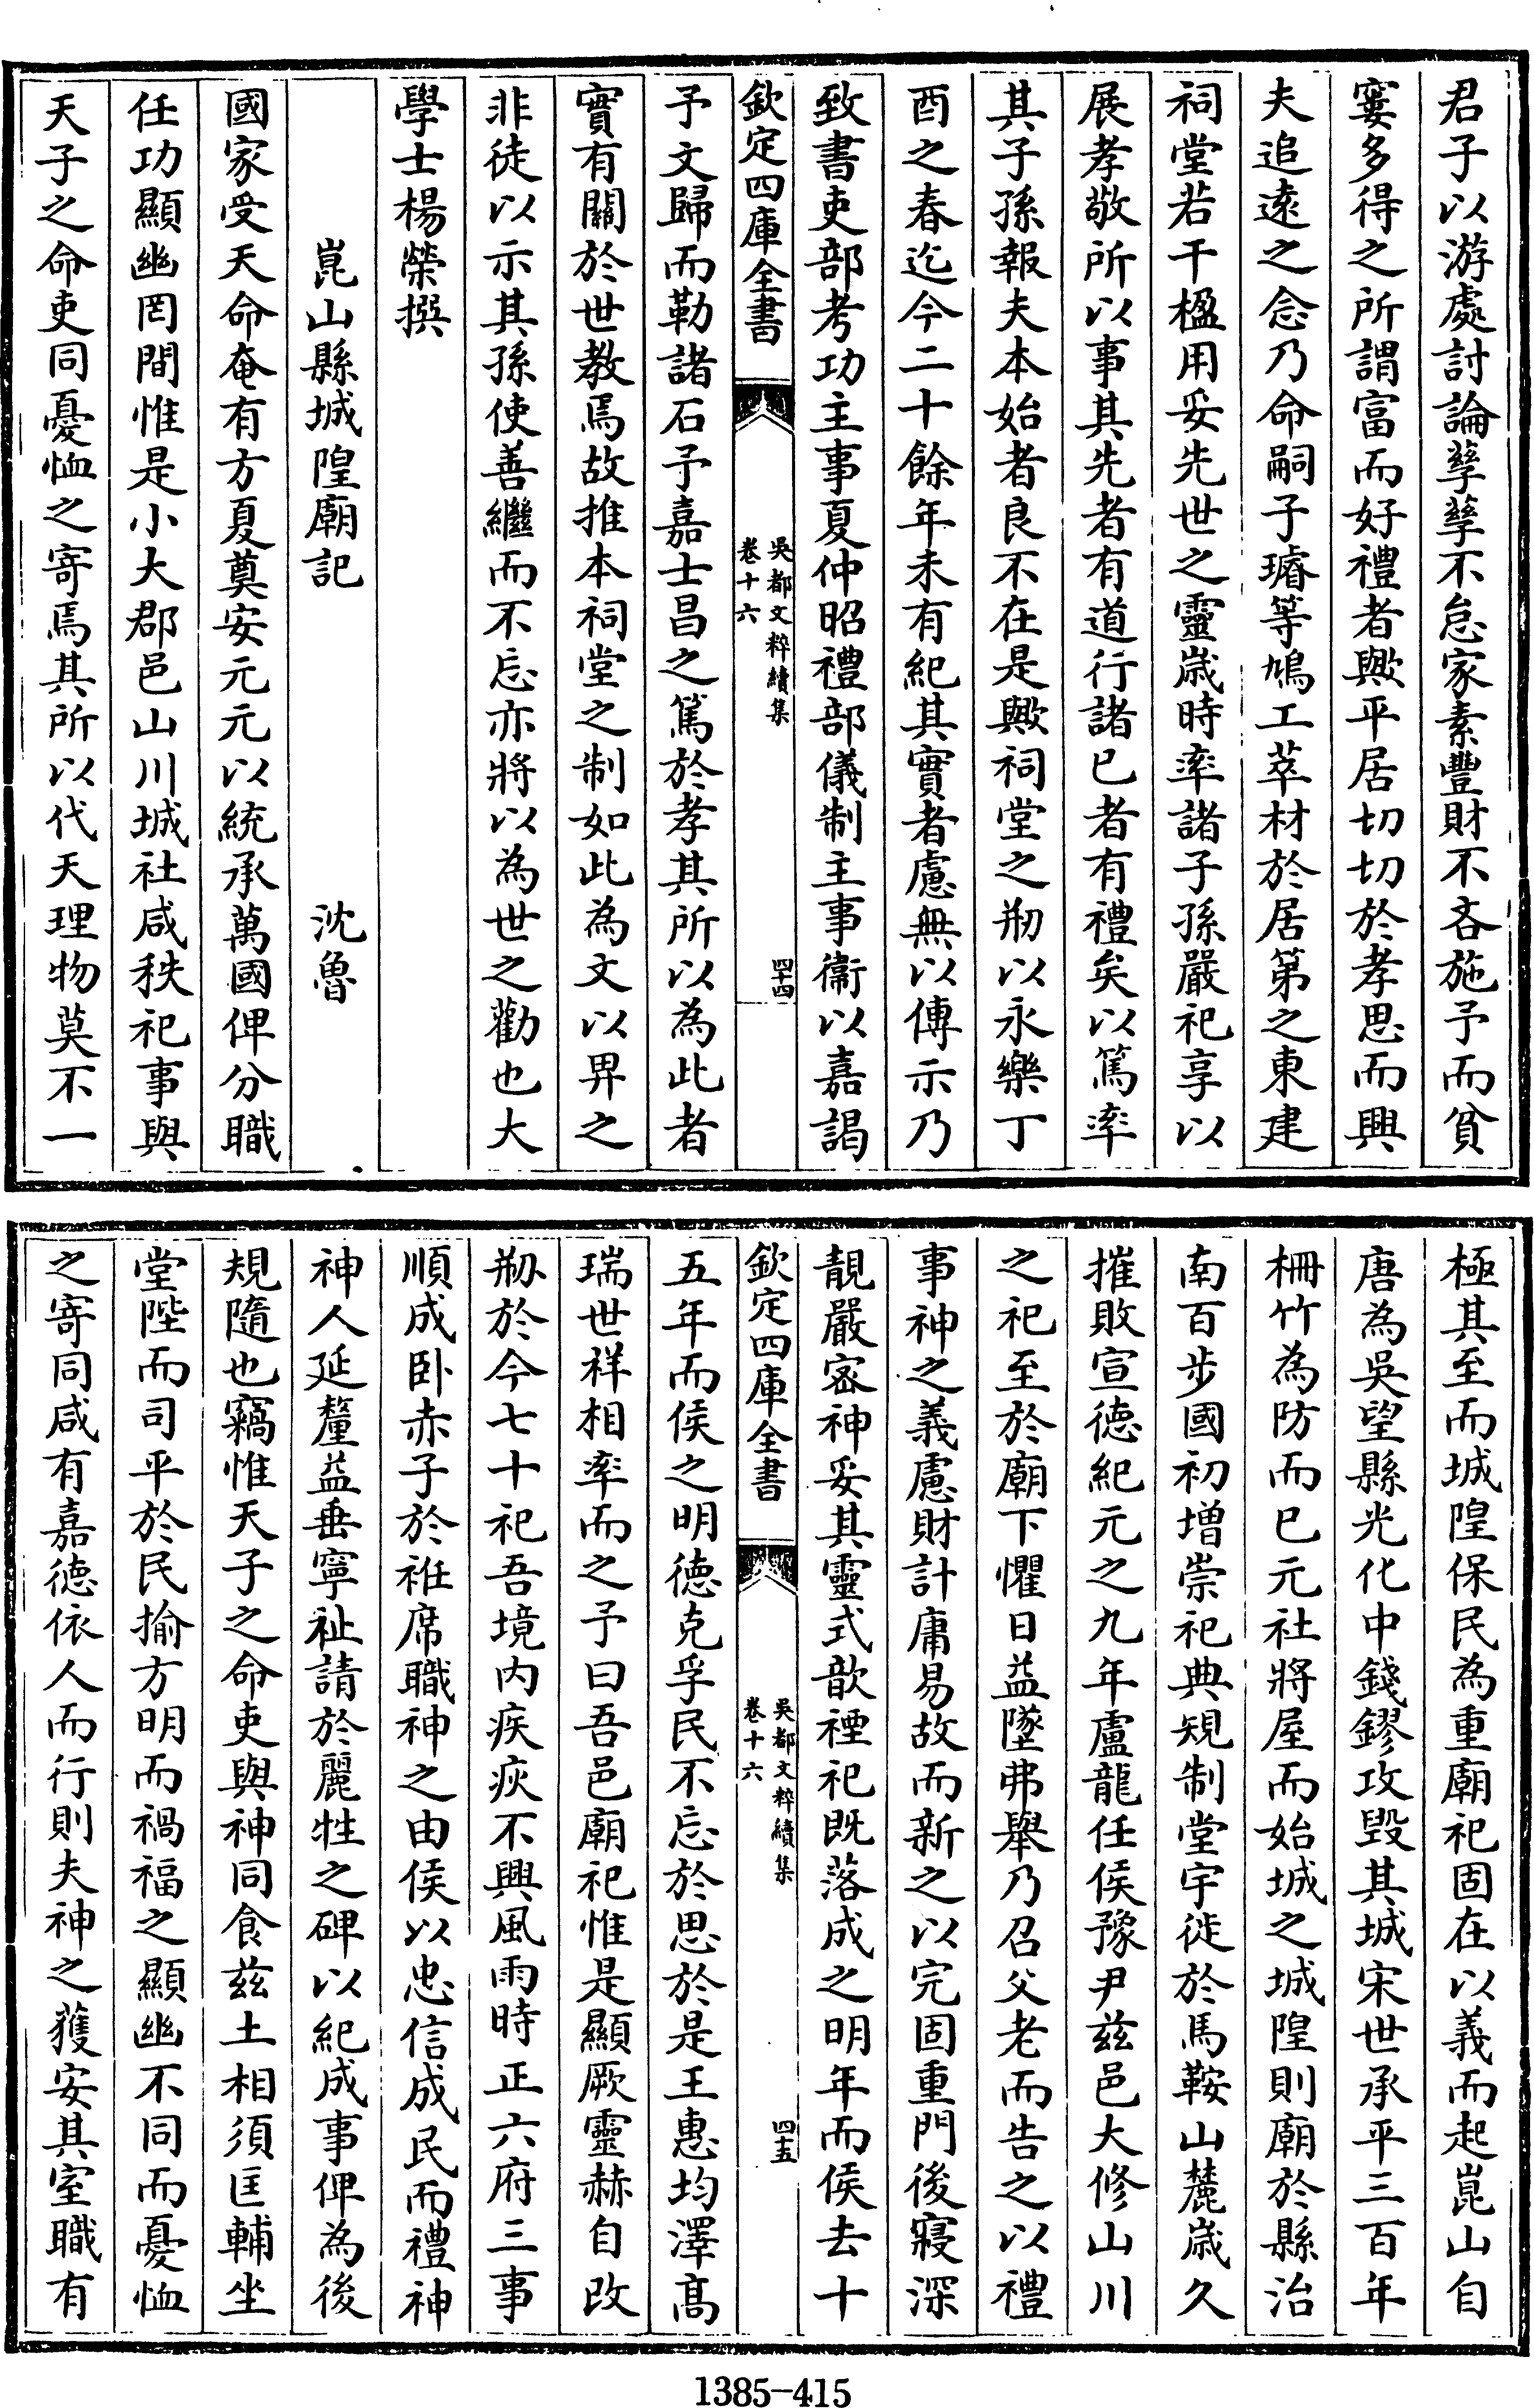 君子以游處討論孳孳不怠家素豐財不吝施予而貧
窶多得之所謂富而好禮者歟平居切切於孝思而興
夫追遠之念乃命嗣子璿等鳩工萃材於居第之東建
祠堂若干楹用妥先世之靈歲時率諸子孫嚴祀享以
展孝敬所以事其先者有道行諸已者有禮矣以篤率
其子孫報夫本始者良不在是歟祠堂之剏以永樂丁
酉之春迄今二十餘年未有紀其實者慮無以傳示乃
致書吏部考功主事夏仲昭禮部儀制主事衞以嘉謁
欽定四庫全書
吳都文粹續集
卷十六
四十四
予文歸而勒諸石予嘉士昌之篤於孝其所以為此者
實有關於世教焉故推本祠堂之制如此為文以畀之
非徒以示其孫使善繼而不忘亦將以為世之勸也大
學士楊榮撰
崑山縣城隍廟記　沈魯
國家受天命奄有方夏奠安元元以統承萬國俾分職
任功顯幽罔間惟是小大郡邑山川城社咸秩祀事與
天子之命吏同憂恤之寄焉其所以代天理物莫不一
極其至而城隍保民為重廟祀固在以義而起崑山自
唐為吳望縣光化中錢鏐攻毀其城宋世承平三百年
柵竹為防而已元社將屋而始城之城隍則廟於縣治
南百步國初增崇祀典規制堂宇徙於馬鞍山麓歲久
摧敗宣德紀元之九年盧龍任侯豫尹兹邑大修山川
之祀至於廟下懼日益墜弗舉乃召父老而告之以禮
事神之義慮財計庸易故而新之以完固重門後寢深
靚嚴宻神妥其靈式歆禋祀既落成之明年而侯去十
欽定四庫全書
吳都文粹續集
卷十六
四十五
五年而侯之明徳克孚民不忘於思於是王惠均澤髙
瑞世祥相率而之予曰吾邑廟祀惟是顯厥靈赫自改
剏於今七十祀吾境内疾疢不興風雨時正六府三事
順成卧赤子於袵席職神之由侯以忠信成民而禮神
神人延釐益垂寧祉請於麗牲之碑以紀成事俾為後
規隨也竊惟天子之命吏與神同食兹土相須匡輔坐
堂陛而司平於民揄方明而禍福之顯幽不同而憂恤
之寄同咸有嘉徳依人而行則夫神之蕕安其室職有
1385-415